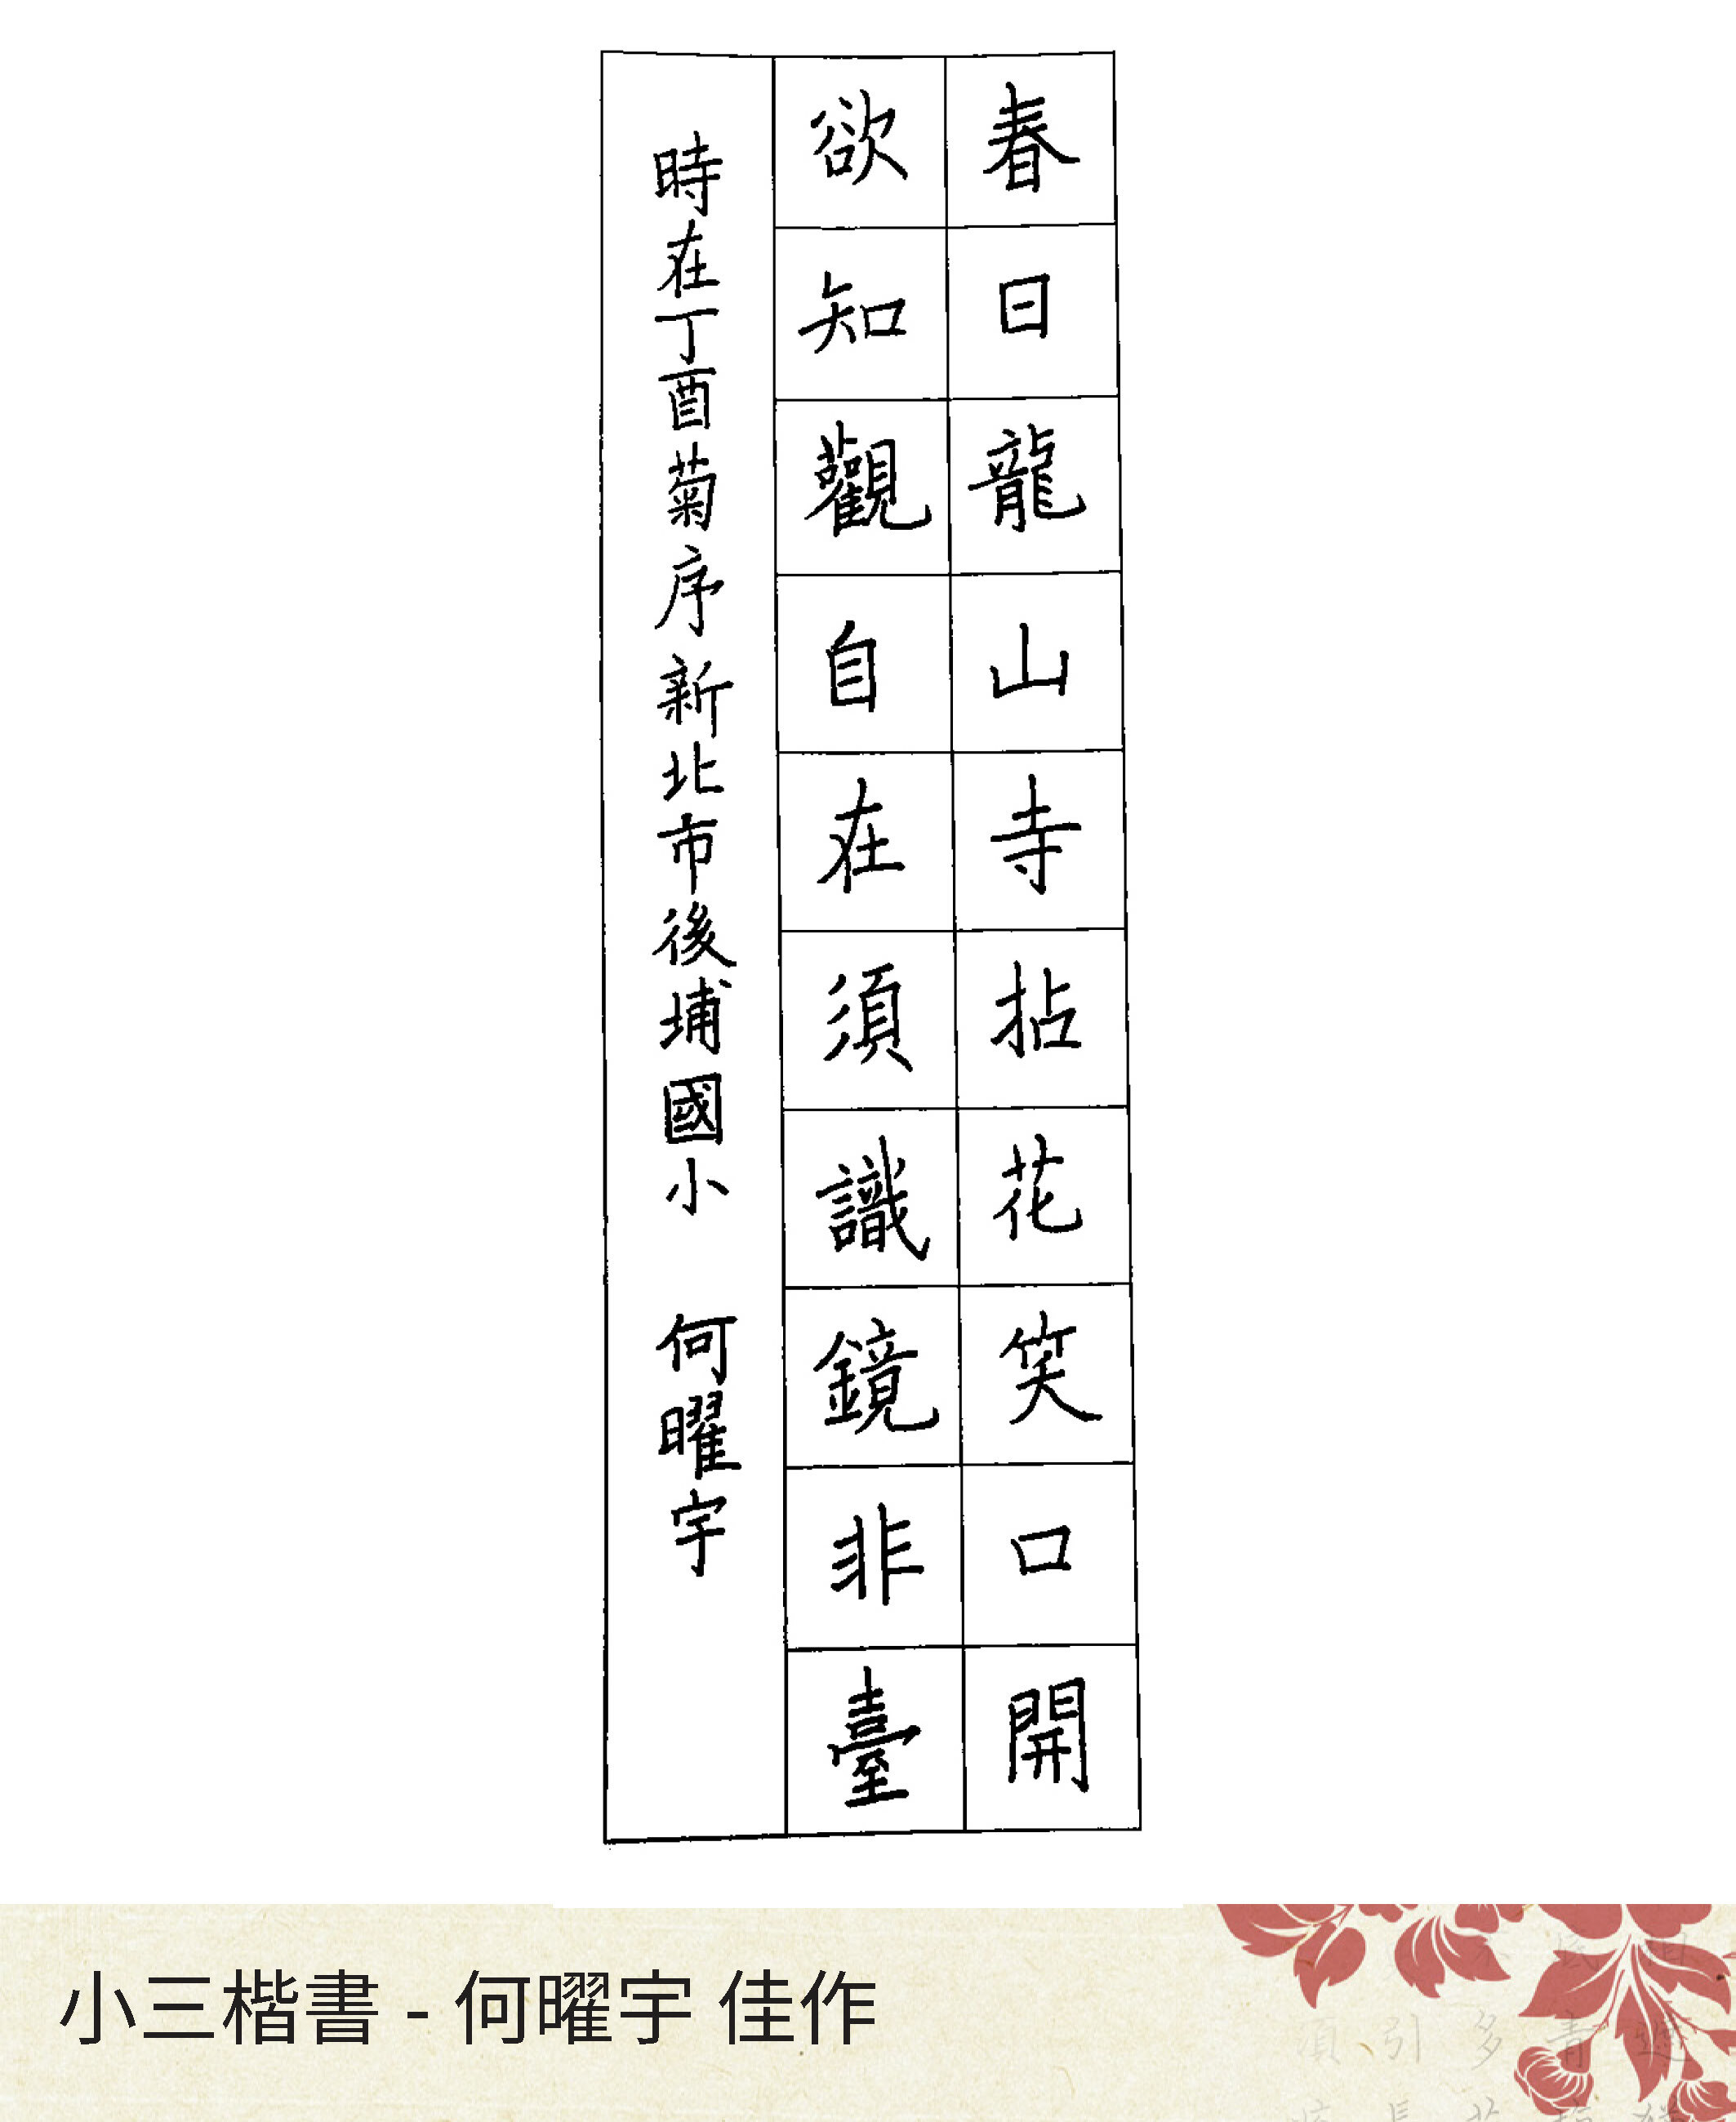 春日龍山寺拈花笑口開
欲知觀自在須識鏡非臺
時在丁酉菊序新北市後埔國小 何曜宇
小三楷書 - 何曜宇 佳作